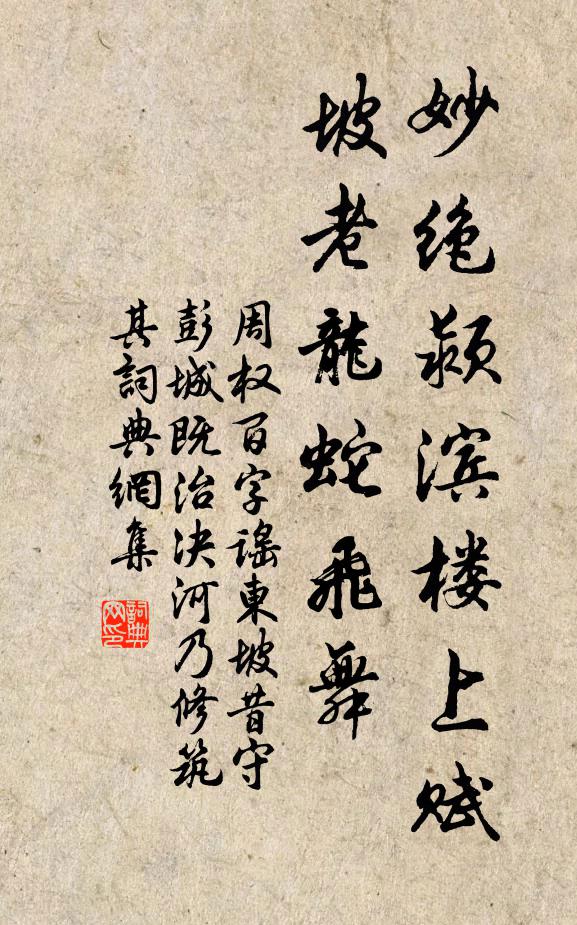 妙绝颍滨楼上赋
坡老龍蛇飛舞
周权百字謠東坡昔守
彭城既治决河乃修筑
其詞典網集
詞典
网印